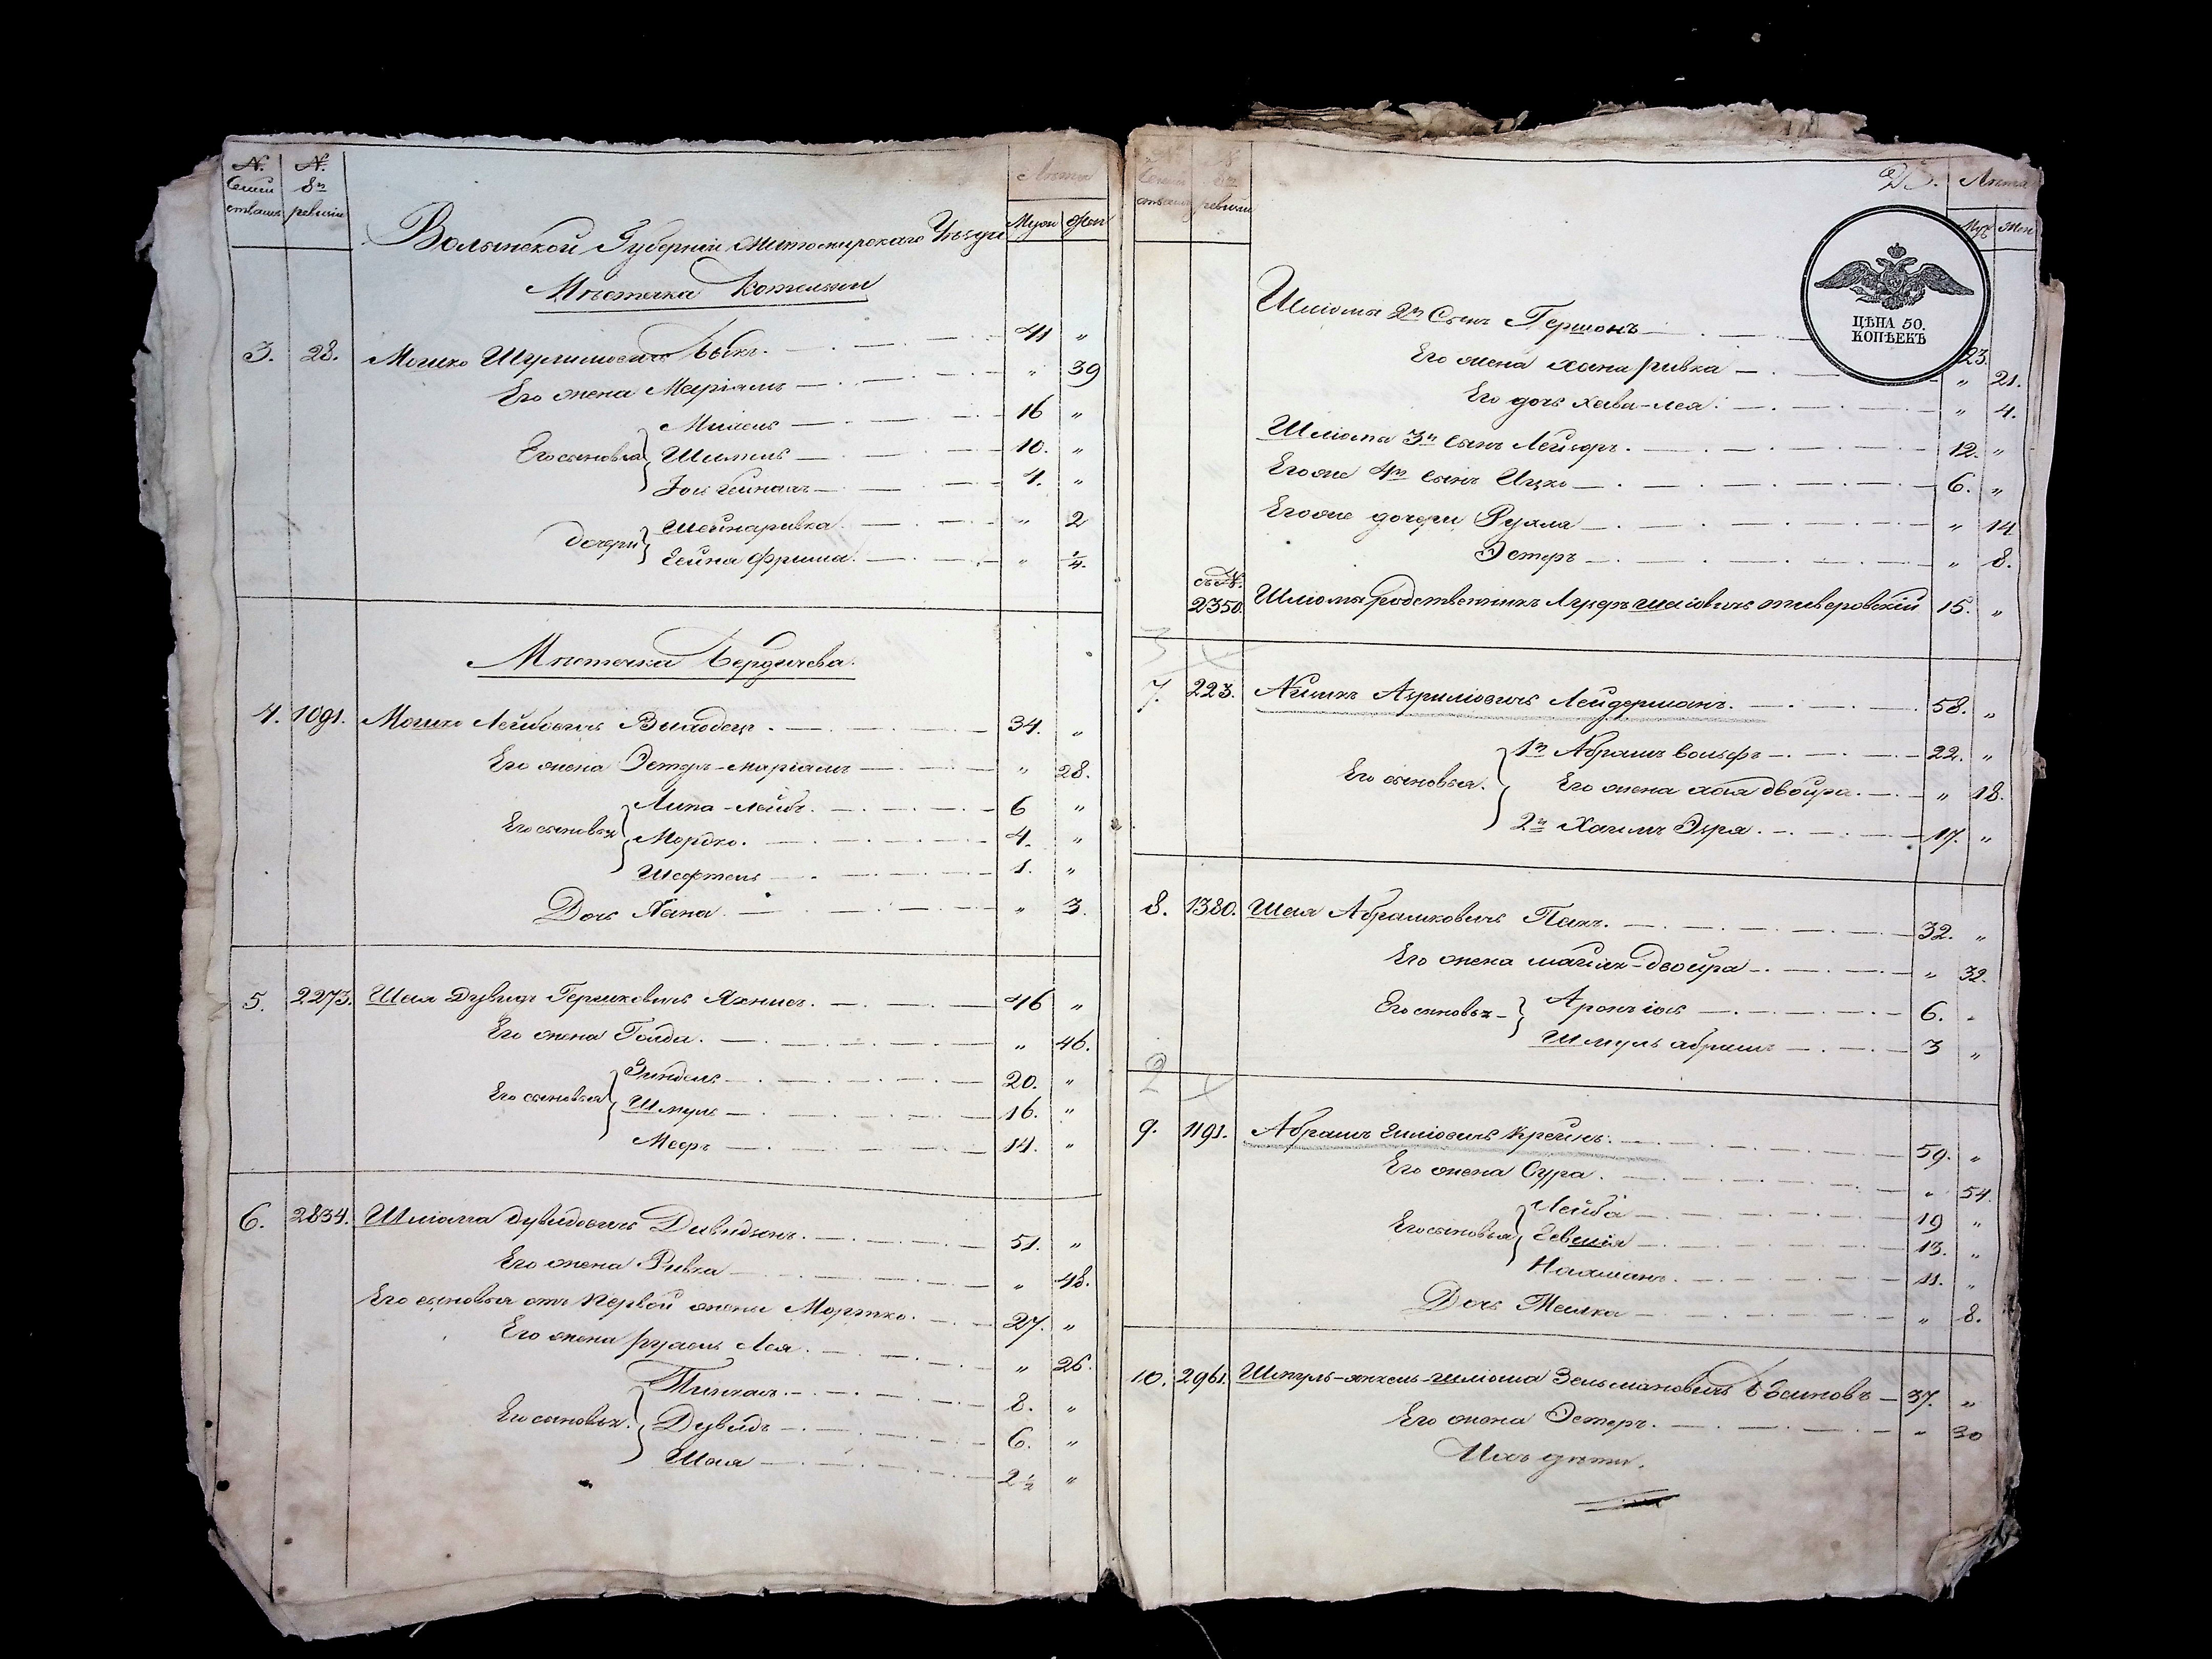 № Семействамъ № 8й ревизiи Лѣта
Муж Жен
Волынской Губернiи Житомирскаго Уѣзда
Мѣстечка Котельни
3. 28. Мошко Шулимовичъ Быкъ. 41 "
Его жена Марiямъ " 39
Его сыновья 16 "
Шимель 10. "
4. "
Дочери Шейнаривка. " 2
Фрима. " 1/4.
Мѣстечка Бердичева.
4. 1091. Мошко Лейбовичъ 34. "
Его жена Эстеръ-марiямъ " 28.
Его сыновья Липа-лейбъ. 6 "
Мордко. 4. "
Шефтель 1. "
Дочь Хана. " 3.
5. 2273. Шая Дувидъ Гершковичъ 46 "
Его жена Голда. " 46.
Его сыновья Зиндель 20. "
Шмуль 16. "
Мееръ 14. "
6. 2834. Шлiома Дувидовичъ Дивидзонъ. 51. "
Его жена Ривка " 48.
Его сыновья отъ первой жены Мортко. 27. "
Его жена рухель Лея. " 26.
Его сыновья. Пинхасъ. 8. "
Дувидъ 6. "
Шая 2 1/2 "
№ Семействамъ № 8й ревизiи 25. Лѣта
Муж Жен
ЦѢНА 50.
КОПѢЕКЪ
Шлiомы 2й Сынъ Гершонъ 23.
Его жена хана ривка " 21.
Его дочь хава-лея. " 4.
Шлiома 3й сынъ Лейзоръ. 12. "
Егоже 4й сынъ Ицко 6. "
Егоже дочери Рухля " 14
Эстеръ " 8.
съ №.
2350. Шлiомы родственникъ шаiовичъ 15. "
3
7. 223. Азрилiовичъ Лейдерманъ. 58. "
Его сыновья. 1й Абрамъ вольфъ 22. "
Его жена хая двойра. " 18.
2й Хаимъ Эзря. 17. "
8. 1380. Шая Абрамковичъ Пакъ. 32. "
Его жена двойра " 32.
Его сыновья Аронъ iось 6.
Шмуль абрамъ 3 "
2
9. 1191. Абрамъ Крейнъ. 59. "
Его жена Сура. " 54.
Его сыновья Лейба 19 "
Евшiя 13. "
Нахманъ. 11. "
Дочь Малка " 8.
10. 2961. Шмуль-янкель-шлiома Зельмановичъ 37. "
Его жена Эстеръ. " 30
Ихъ дѣти.